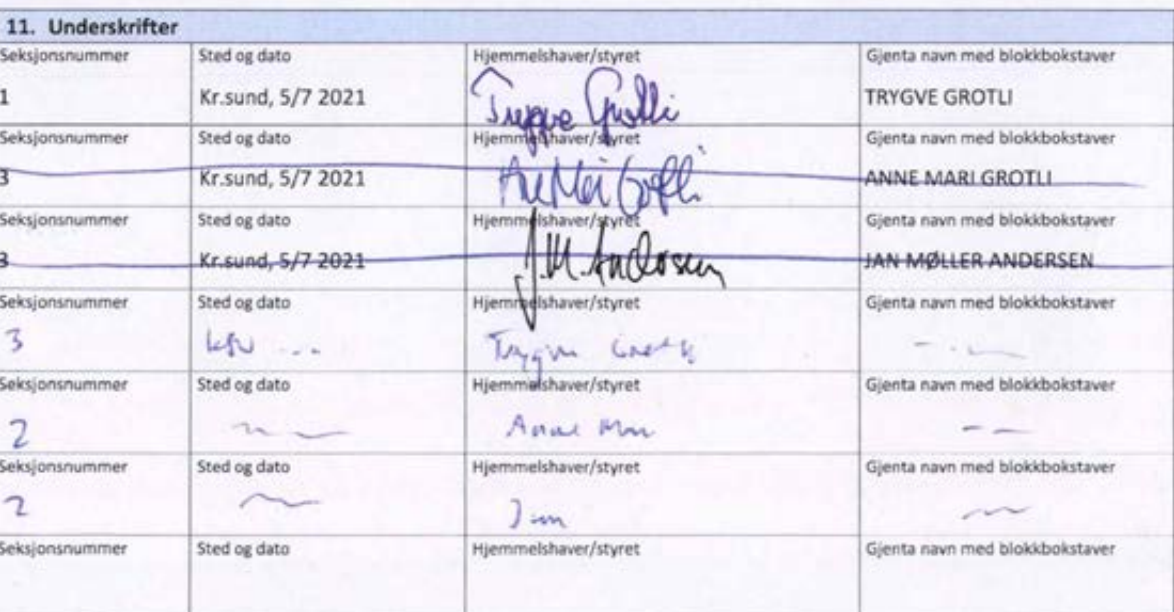 11. Underskrifter
Seksjonsnummer Sted og dato Hjemmelshaver/styret Gjenta navn med blokkbokstaver
1 Kr.sund, 5/7 2021 Trygve Grotli TRYGVE GROTLI
Seksjonsnummer Sted og dato Hjemmelshaver/styret Gjenta navn med blokkbokstaver
3 Kr.sund, 5/7 2021 ANNE MARI GROTLI
Seksjonsnummer Sted og dato Hjemmelshaver/styret Gjenta navn med blokkbokstaver
3 Kr.sund, 5/7 2021 J.M. Andersen JAN MØLLER ANDERSEN
Seksjonsnummer Sted og dato Hjemmelshaver/styret Gjenta navn med blokkbokstaver
3 Trygve
Seksjonsnummer Sted og dato Hjemmelshaver/styret Gjenta navn med blokkbokstaver
2 Anne
Seksjonsnummer Sted og dato Hjemmelshaver/styret Gjenta navn med blokkbokstaver
2
Seksjonsnummer Sted og dato Hjemmelshaver/styret Gjenta navn med blokkbokstaver